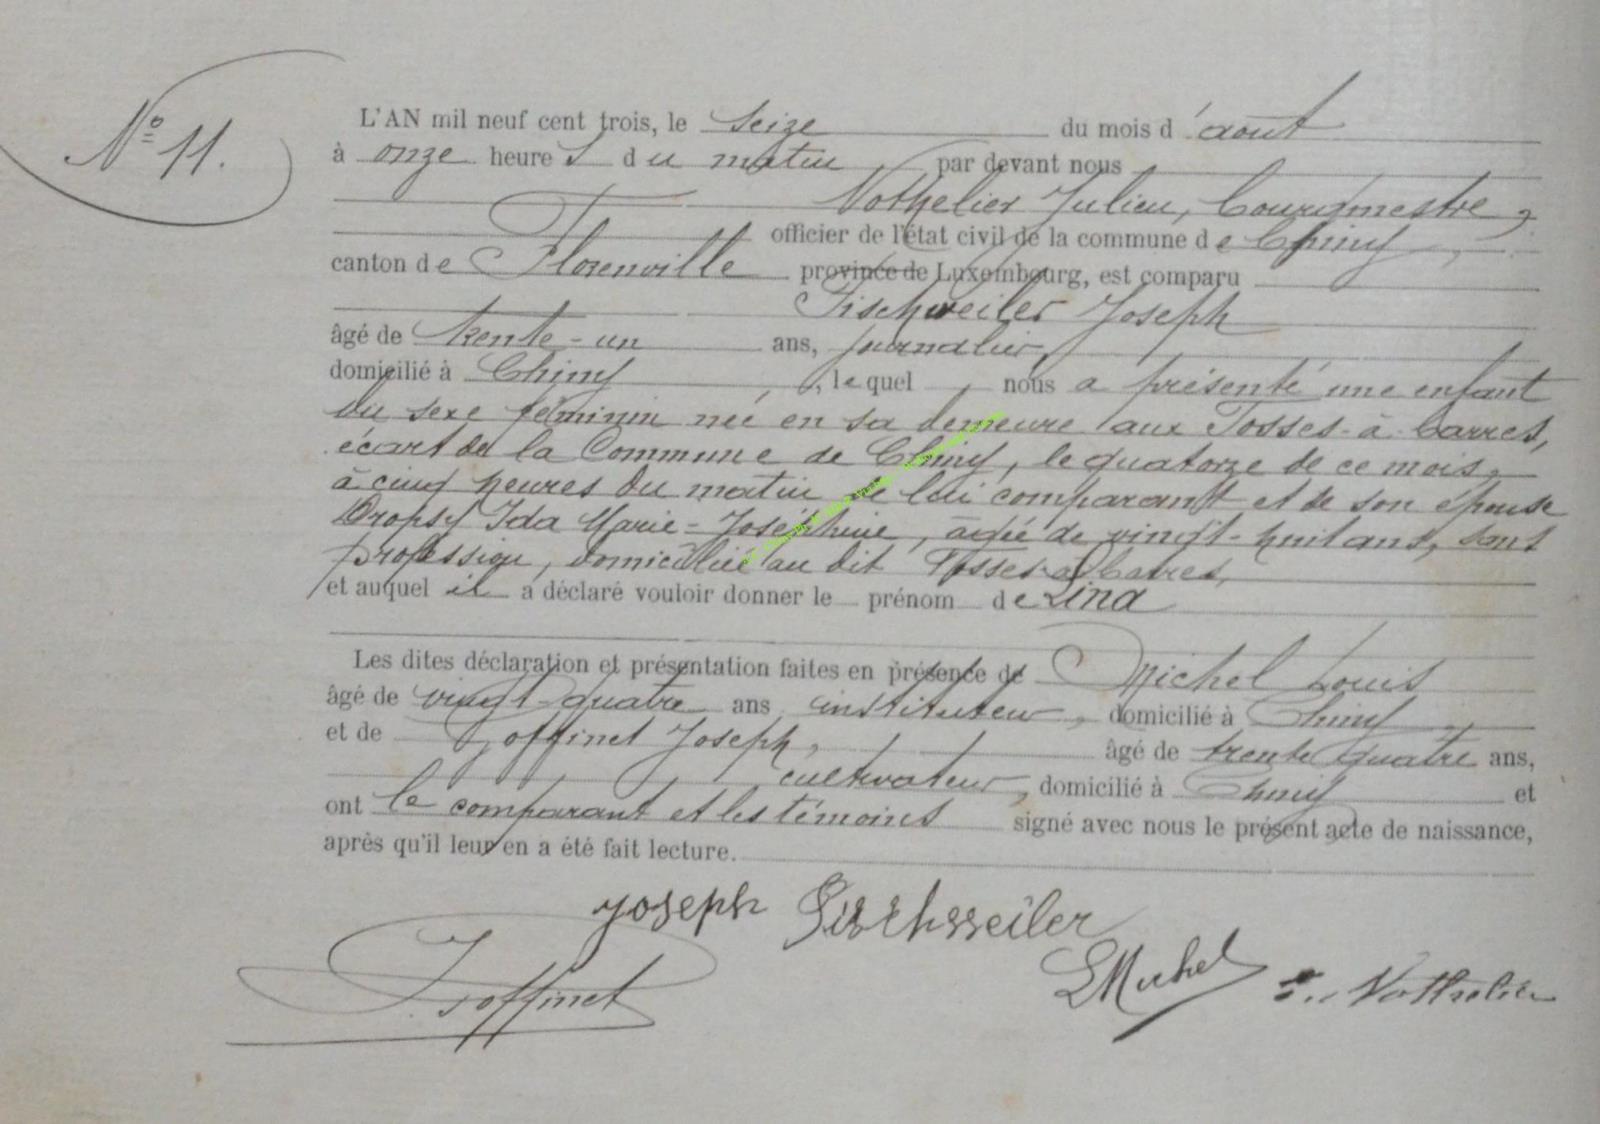 N° 11.
L'AN mil neuf cent trois, le seize du mois d'août
à onze heures du matin par devant nous
Nothelier Julien, Bourgmestre,
officier de l'état civil de la commune de Chiny,
canton de Florenville province de Luxembourg, est comparu
Fischweiler Joseph
âgé de trente-un ans, journalier,
domicilié à Chiny, lequel nous a présenté une enfant
du sexe féminin née en sa demeure aux Fosses-à-barres,
écart de la Commune de Chiny, le quatorze de ce mois,
à cinq heures du matin de lui comparant et de son épouse
Dropsy Ida Marie-Joséphine, âgée de vingt-huit ans, sans
profession, domiciliée au dit Fosses-à-barres,
et auquel il a déclaré vouloir donner le prénom de Lina
Les dites déclaration et présentation faites en présence de Michel Louis
âgé de vingt-quatre ans instituteur, domicilié à Chiny
et de Goffinet Joseph, âgé de trente quatre ans,
cultivateur, domicilié à Chiny et
ont le comparant et les témoins signé avec nous le présent acte de naissance,
après qu'il leur en a été fait lecture.
Joseph Fischsseiler
J. Goffinet
LMichel
Nothelier